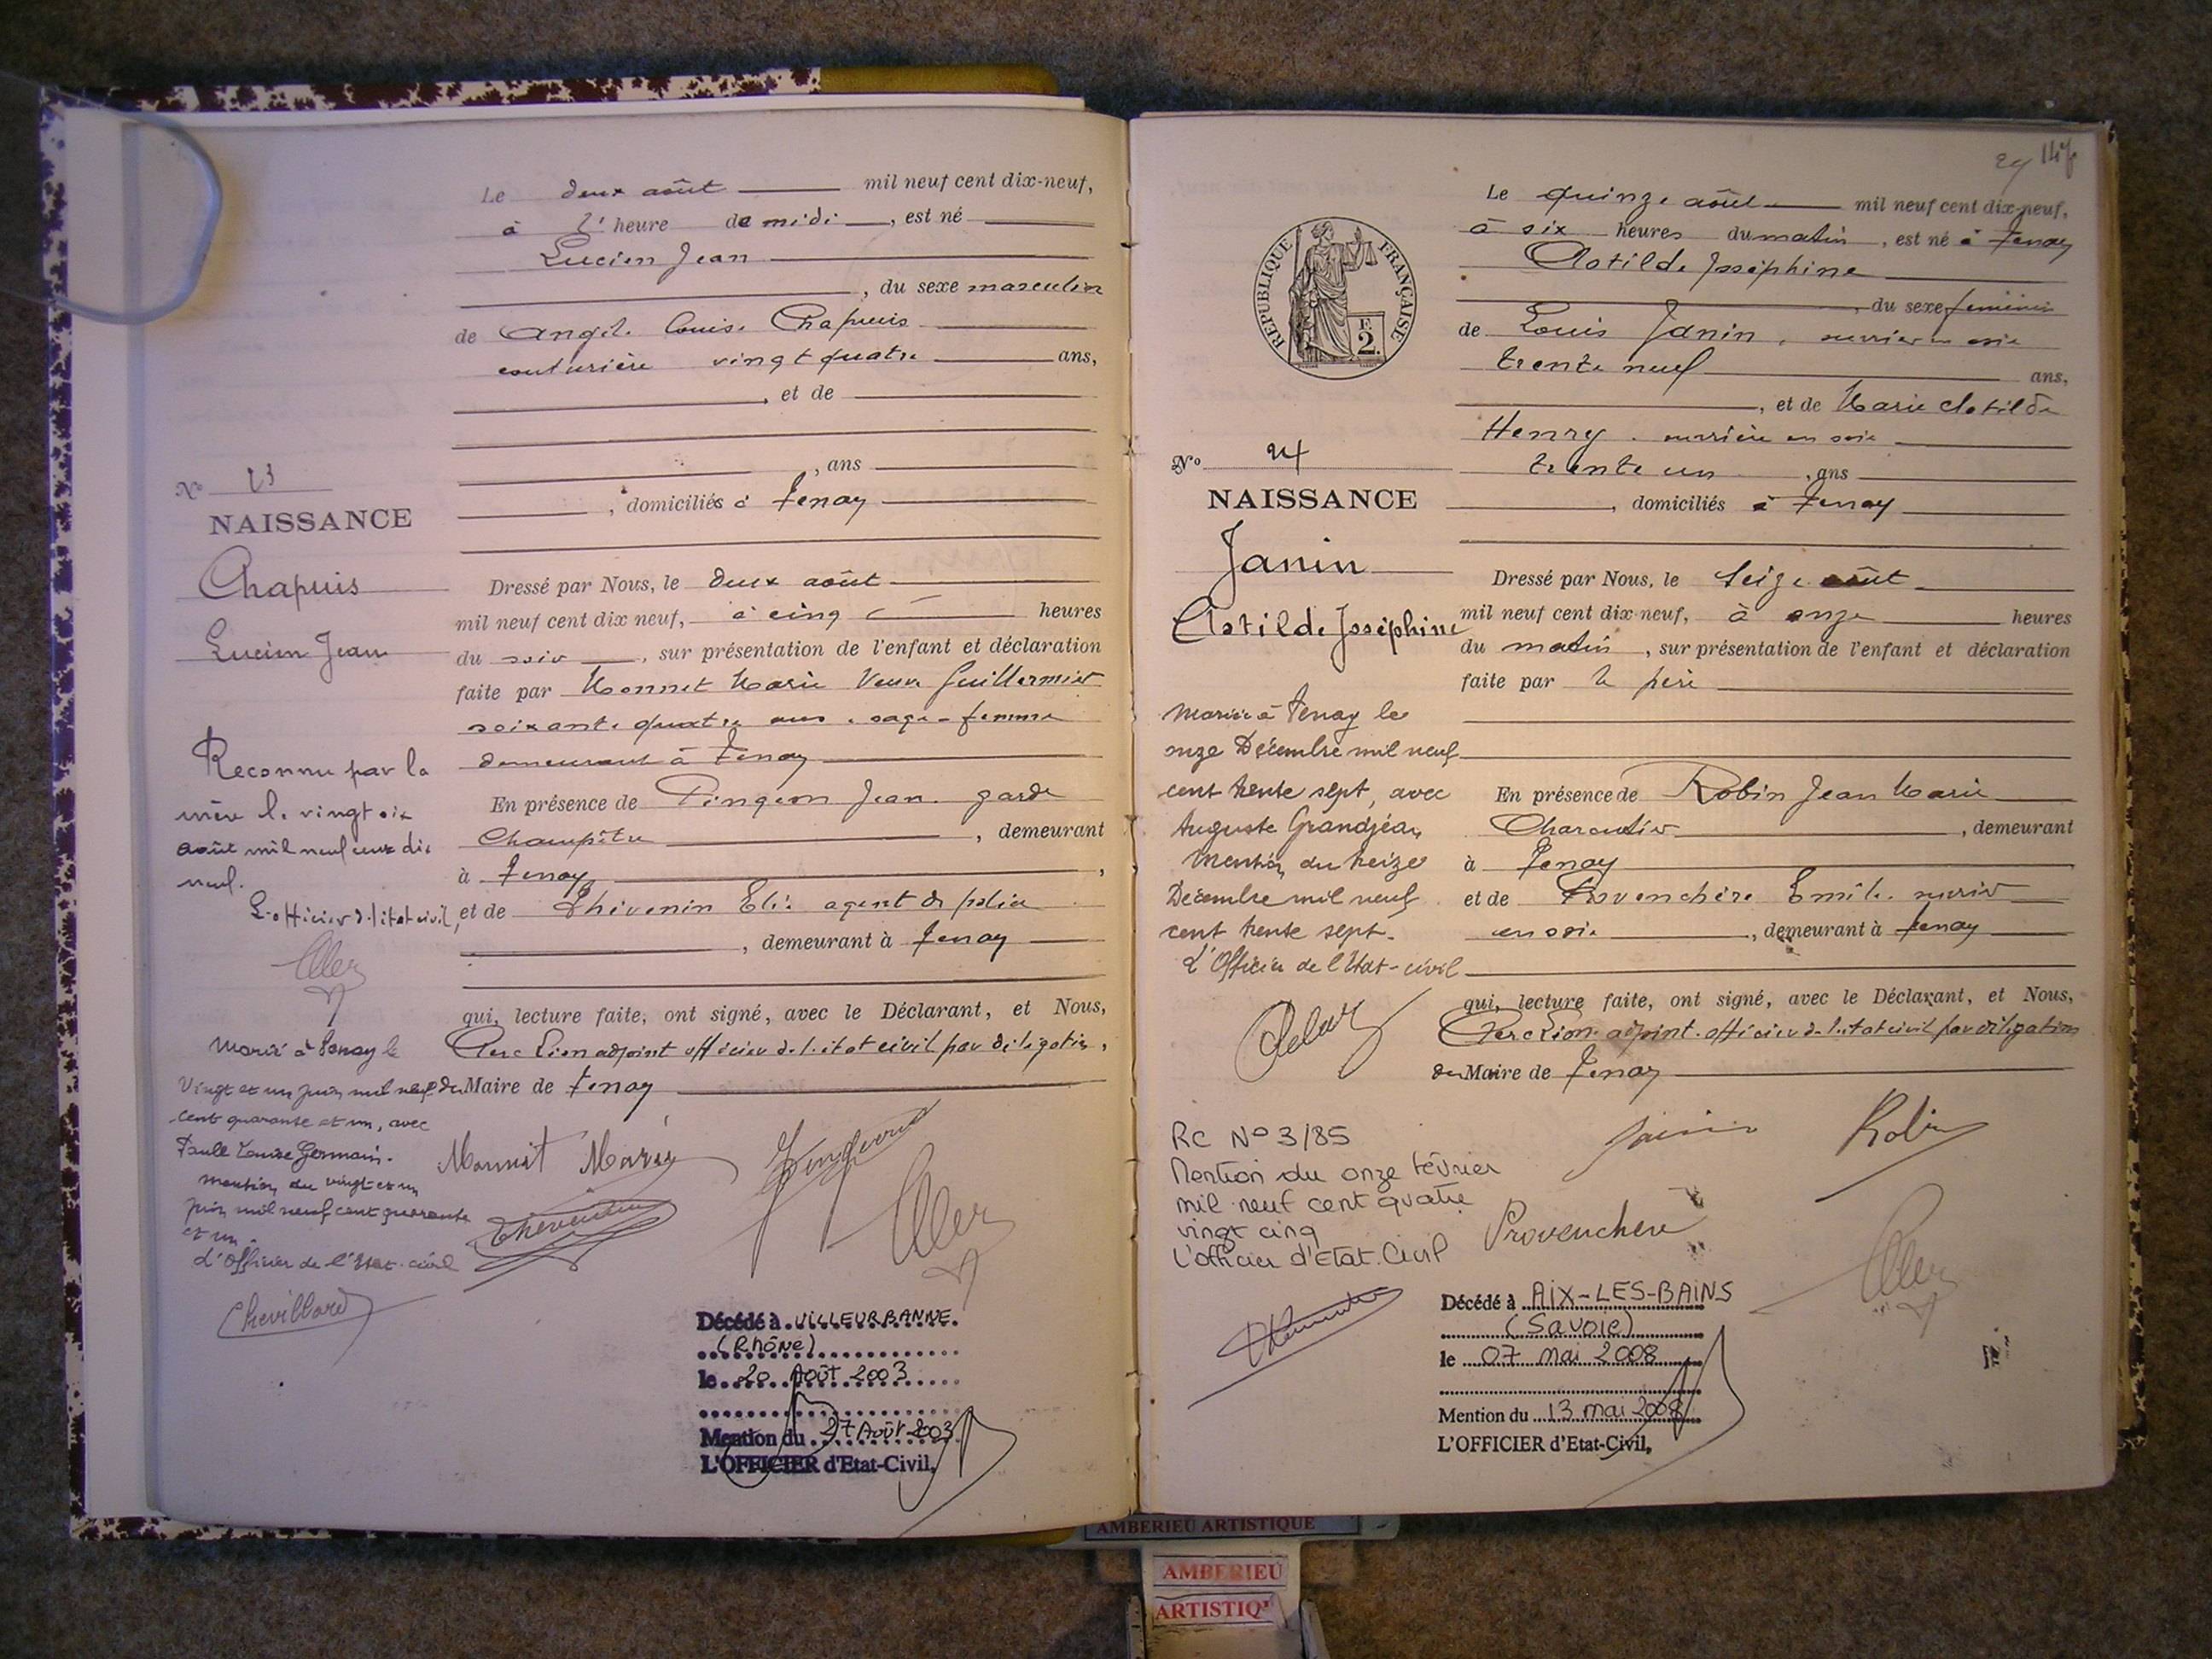 Le deux août mil neuf cent dix-neuf,
à l'heure de midi, est né
Lucien Jean
, du sexe masculin
de Angèle Louise Chapuis
couturière vingt quatre ans,
, et de
, ans
, domiciliés à Tenay
N° 23
NAISSANCE
Chapuis
Lucien Jean
Dressé par Nous, le deux août
mil neuf cent dix neuf, à cinq heures
du soir, sur présentation de l'enfant et déclaration
faite par Monnet Marie Veuve Guillermet
soixante quatre ans, sage-femme
demeurant à Tenay
En présence de Pingeon Jean, garde
Champêtre, demeurant
à Tenay,
et de Thévenin Elie agent de police
, demeurant à Tenay
qui, lecture faite, ont signé, avec le Déclarant, et Nous,
Clerc Léon adjoint officier de l'état civil par délégation,
du Maire de Tenay
Reconnu par la
mère le vingt six
août mil neuf cent dix
neuf.
L'officier de l'état civil,
Clerc
Marié à Tenay le
Vingt et un juin mil neuf
cent quarante et un, avec
Paule Louise Germain.
mention du vingt et un
juin mil neuf cent quarante
et un.
L'Officier de l'Etat-civil
Chevillard
Monnet Marie
Thévenin
Clerc
Décédé à VILLEURBANNE
(Rhône)
le 20 Août 2003
Mention du 27 Août 2003
L'OFFICIER d'Etat-Civil,
29 147
Le quinze août mil neuf cent dix-neuf,
à six heures du matin, est né à Tenay
Clotilde Joséphine
, du sexe féminin
de Louis Janin, ouvrier en soie
trente neuf ans,
, et de Marie Clotilde
Henry, ouvrière en soie
trente un, ans
, domiciliés à Tenay
RÉPUBLIQUE FRANÇAISE
F.
2.
N° 24
NAISSANCE
Janin
Clotilde Joséphine
Dressé par Nous, le seize août
mil neuf cent dix-neuf, à onze heures
du matin, sur présentation de l'enfant et déclaration
faite par le père
En présence de Robin Jean Marie
Charcutier, demeurant
à Tenay
et de Provenchère Emile, ouvrier
en soie, demeurant à Tenay
qui, lecture faite, ont signé, avec le Déclarant, et Nous,
Clerc Léon adjoint officier de l'état civil par délégation
du Maire de Tenay
Mariée à Tenay le
onze Décembre mil neuf
cent trente sept, avec
Auguste Grandjean
Mention du treize
Décembre mil neuf
cent trente sept.
L'Officier de l'Etat-civil
RC N° 3/85
Mention du onze février
mil neuf cent quatre
vingt cinq
L'officier d'Etat.Civil
Janin
Robin
Provenchère
Clerc
Décédé à AIX-LES-BAINS
(Savoie)
le 07 mai 2008
Mention du 13 mai 2008
L'OFFICIER d'Etat-Civil,
AMBERIEU ARTISTIQUE
AMBERIEU
ARTISTIQ